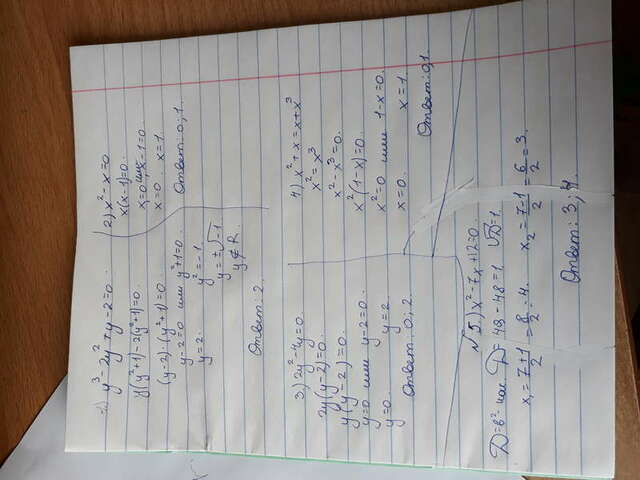 1) y³ - 2y² + y - 2 = 0.
y(y²+1) - 2(y²+1) = 0.
(y-2)·(y²+1) = 0.
y-2=0 или y²+1=0.
y=2. y²=-1.
y=±√-1
y∉R.
Ответ: 2.
2) x² - x = 0
x(x-1)=0.
x=0 или x-1=0.
x=0. x=1.
Ответ: 0; 1.
3) 2y² - 4y = 0.
2y(y-2)=0.
y(y-2)=0.
y=0 или y-2=0.
y=0. y=2
Ответ: 0; 2.
4) x² + x = x + x³
x² = x³
x² - x³ = 0.
x²(1-x)=0.
x²=0 или 1-x=0.
x=0. x=1.
Ответ: 0,1.
№5.) x² - 7x + 12 = 0.
D=b²-4ac D=49-48=1 √D=1
x₁ = 7+1/2 = 8/2 = 4. x₂ = 7-1/2 = 6/2 = 3.
Ответ: 3; 4.